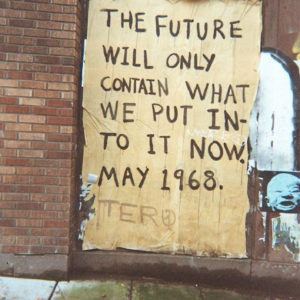 THE FUTURE
WILL ONLY
CONTAIN WHAT
WE PUT IN-
TO IT NOW.
MAY 1968.